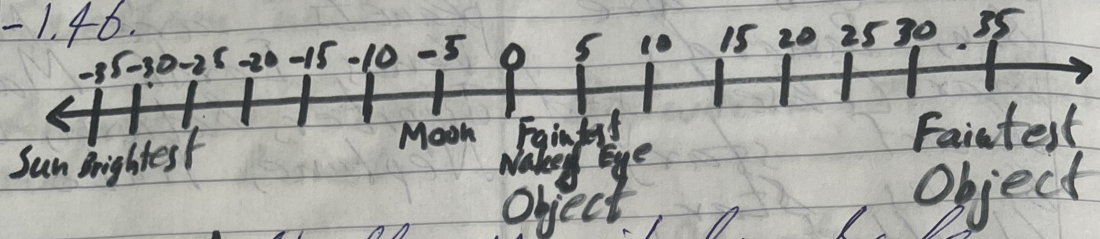 -1.46.
-35 -30 -25 -20 -15 -10 -5 0 5 10 15 20 25 30 35
Sun Brightest Moon Faintest Faintest
Naked Eye Object
Object